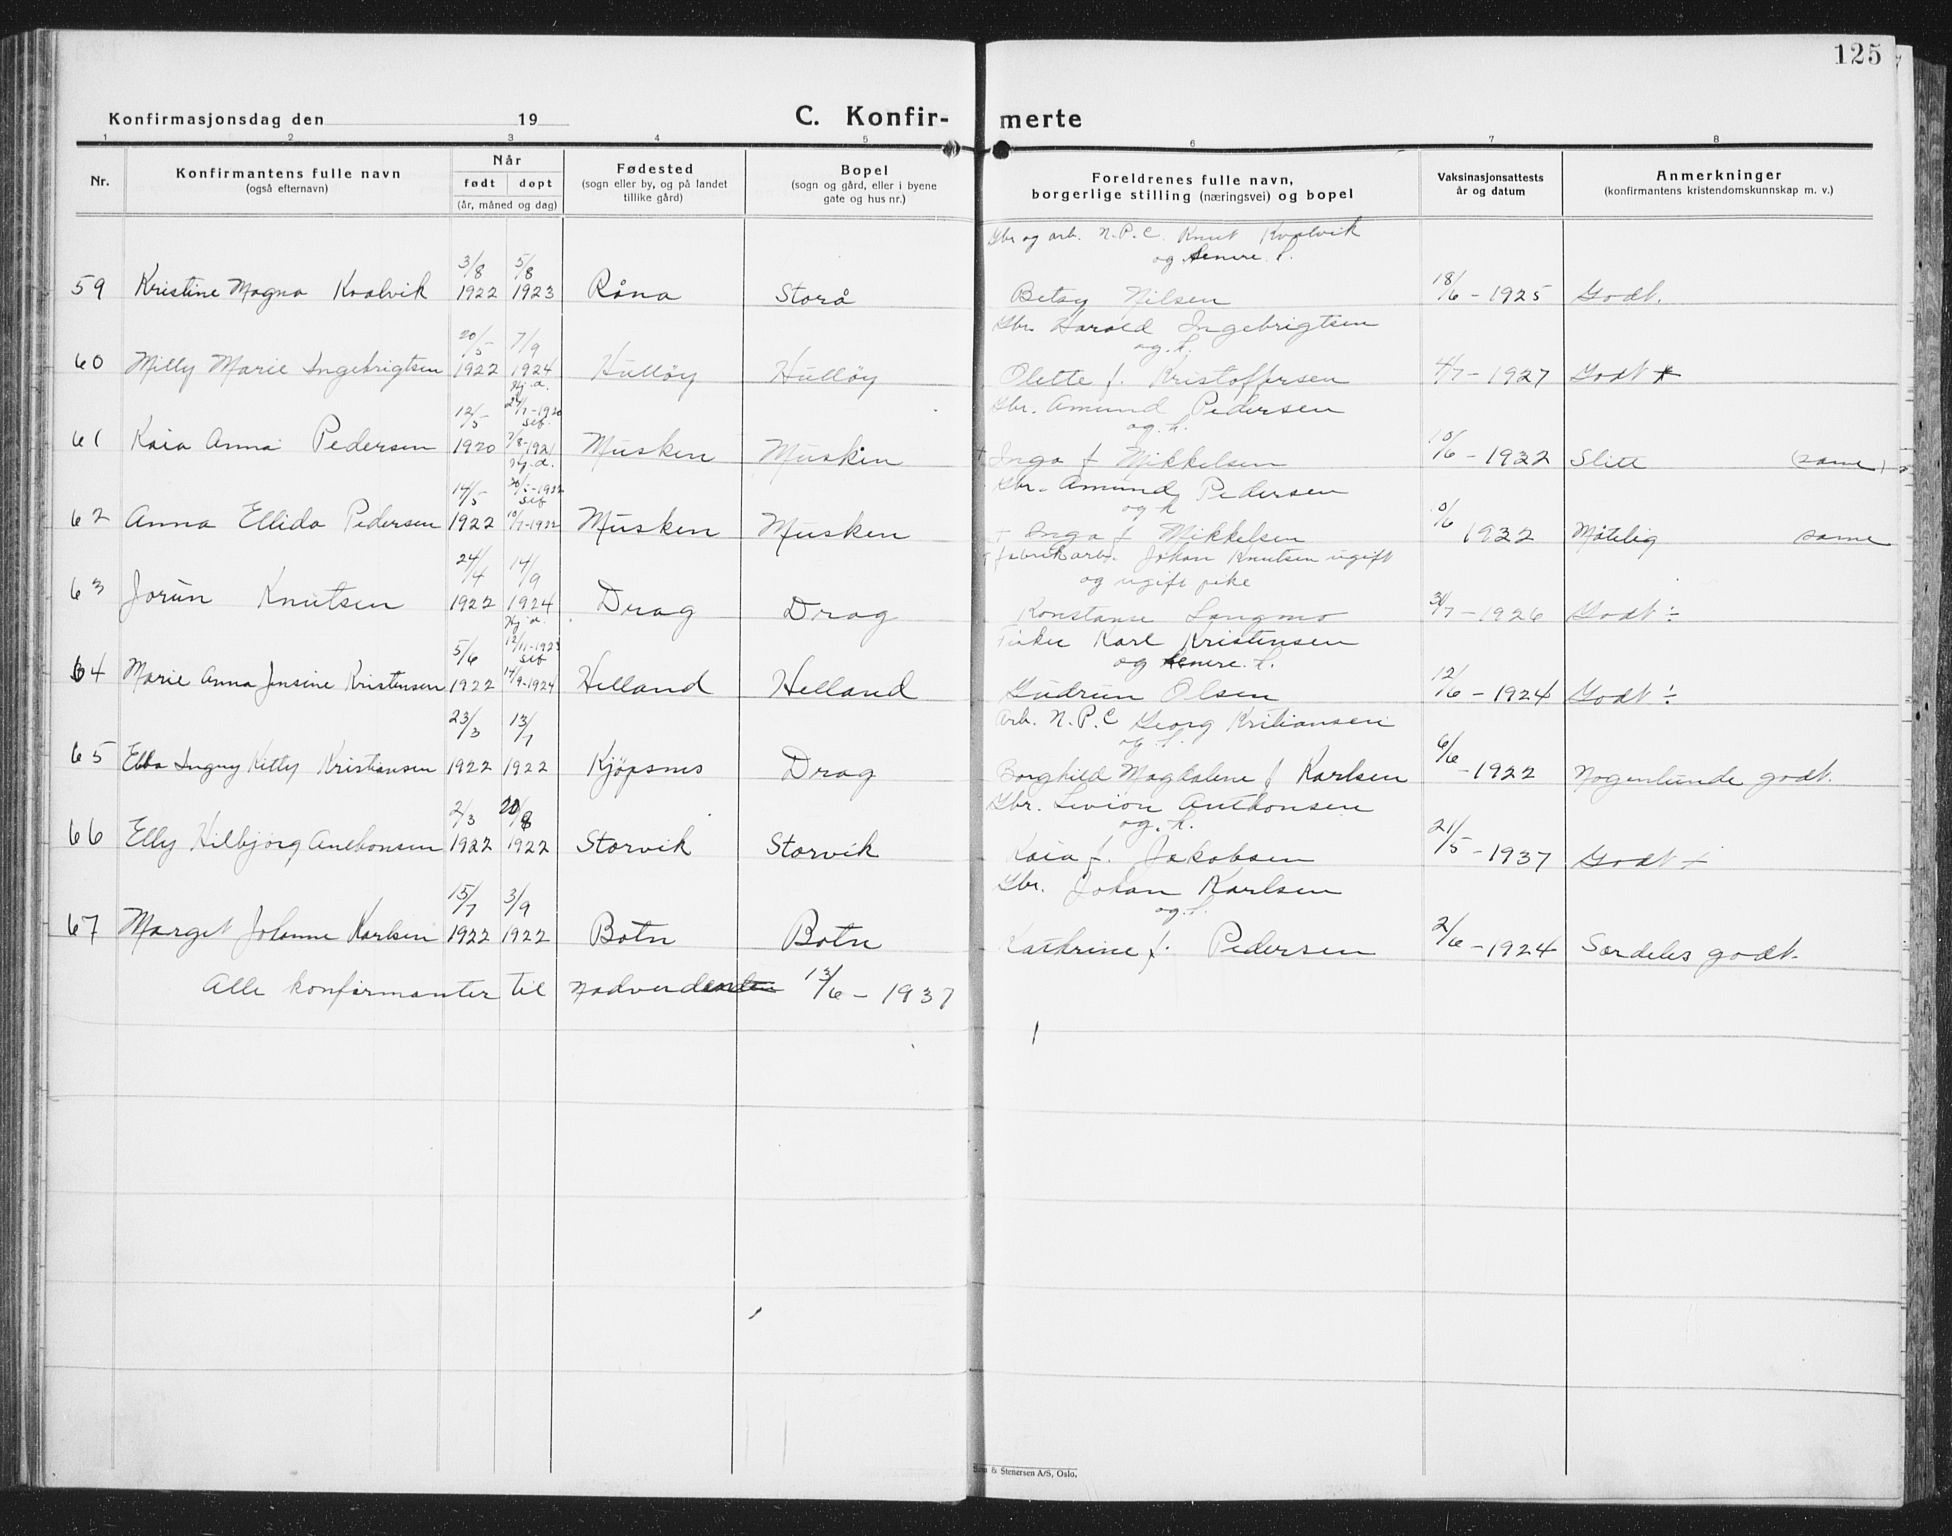 125
Konfirmasjonsdag den 19
C. Konfir- merte
1 2 3 4 5 6 7 8
Nr.
Konfirmantens fulle navn
(også efternavn)
Når
født døpt
(år, måned og dag)
Fødested
(sogn eller by, og på landet
tillike gård)
Bopel
(sogn og gård, eller i byene
gate og hus nr.)
Foreldrenes fulle navn,
borgerlige stilling (næringsvei) og bopel
Vaksinasjonsattests
år og datum
Anmerkninger
(konfirmantens kristendomskunnskap m. v.)
Gbr og arb. N.P.C. Knut Kvalvik
3/8 5/8 og h.
59 Kristine Magna Kvalvik 1922 1923 Råna Storå Betsy Nilsen 18/6 - 1925 Godt.
20/5 7/9 Gbr. Harald Ingebrigtsen
og h.
60 Milly Marie Ingebrigtsen 1922 1924 Hulløy Hulløy Olette f. Kristoffersen 4/7 - 1927 Godt
Hj.d.
12/5 1920 Gbr. Amund Pedersen
seb. og h.
61 Kaia Anna Pedersen 1920 7/8-1921 Musken Musken + Inga f Mikkelsen 10/6 - 1932 Slett (same)
Hj.d.
14/5 1922 Gbr. Amund Pedersen
seb og h
62 Anna Ellida Pedersen 1922 10/7-1922 Musken Musken + Inga f Mikkelsen 10/6 1932 Måtelig same
24/4 14/9 + fabrikkarb. Johan Knutsen ugift
og ugift pike
63 Jorun Knutsen 1922 1924 Drag Drag Konstanse Langmo 30/7 - 1926 Godt ÷
Hj.d.
5/6 12/11-1923 Fisker Karl Kristensen
seb og h.
64 Marie Anna Jensine Kristensen 1922 14/9-1924 Helland Helland Gudrun Olsen 12/6 - 1924 Godt ÷
23/3 13/7 Arb. N.P.C Georg Kristiansen
og h.
65 Ebba Ingny Kitty Kristiansen 1922 1922 Kjøpsnes Drag Borghild Magdalene f Karlsen 6/6 - 1922 Nogenlunde godt.
2/3 20/8 Gbr. Anthonsen
og h.
66 Elly Hilbjørg Anthonsen 1922 1922 Storvik Storvik Kaia f. Jakobsen 21/5 - 1937 Godt +
15/7 3/9 Gbr. Johan Karlsen
og h.
67 Marget Johanne Karlsen 1922 1922 Botn Botn Kathrine f. Pedersen 2/6 - 1924 Særdeles godt.
Alle konfirmanter til nadverden 13/6 - 1937
& Stenersen A/S, Oslo.